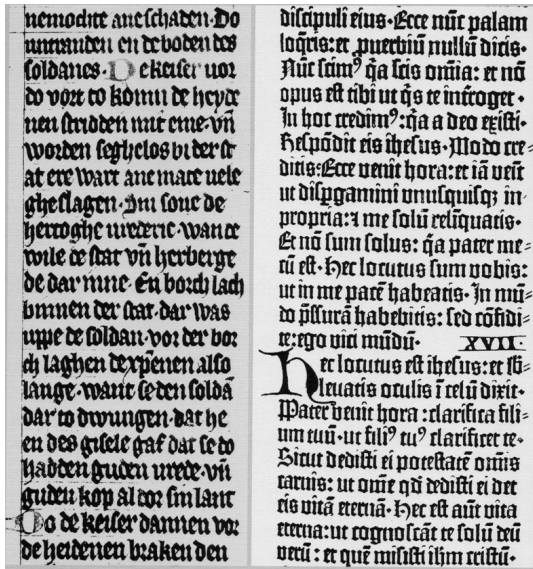 nemochte ane schaden. Do
untranden en de boden des
soldanes. De keiser uor
do vort to komin de heyde
nen stridden mit eme. vn̄
worden seghelos bi der st
at ere wart ane mate uele
gheslagen. Sin sone de
hertoghe urederic. wan de
wile de stat vn̄ herberge
de dar inne. En borch lach
binnen der stat. dar was
uppe de soldan. vor der bor
ch laghen de xp̄enen also
lange. want se den soldā
dar to dwungen. dat he
en des gisele gaf dat se do
hadden guden urede. vn̄
guden kop al dor sin lant
Do de keiser dannen vor
de heidenen braken den
discipuli eius. Ecce nūc palam
loq̄ris: et ꝓuerbiū nullū dicis.
Nūc scimꝰ q̇a scis omīa: et nō
opus est tibi ut q̇s te inſroget.
In hoc credimꝰ: q̇a a deo existi.
Respōdit eis ihesus. Modo cre-
ditis: Ecce venit hora: et iā veīt
ut disꝑgamini vnusquisqȝ in
propria: ⁊ me solū relīquatis.
Et nō sum solus: q̇a pater me-
cū est. Hec locutus sum vobis:
ut in me pacē habeatis. In mū-
do p̄ssurā habebitis: sed cōfidi-
te: ego vici mūdū. XVII.
Hec locutus est ihesus: et sb̄-
leuatis oculis ī celū dixit.
Pater venit hora: clarifica fili-
um tuū. ut filiꝰ tuꝰ clarificet te.
Sicut dedisti ei potestatē omīs
carnis: ut omē qd̄ dedisti ei det
eis vitā eternā. Hec est aūt vita
eterna: ut cognoscāt te solū deū
verū: et quē misisti ihm cristū.